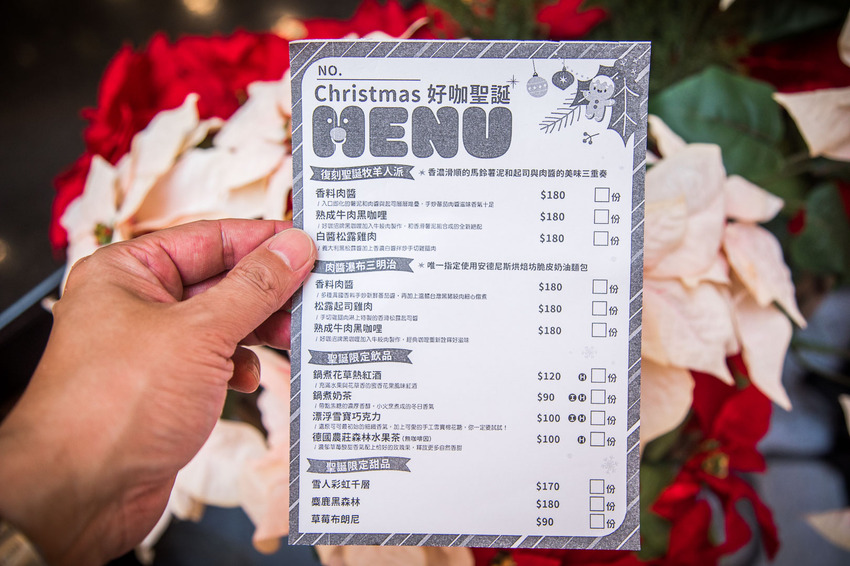 NO.
Christmas 好咖聖誕
MENU
復刻聖誕牧羊人派 ★ 香濃滑順的馬鈴薯泥和起司與肉醬的美味三重奏
香料肉醬 $180 份
熟成牛肉黑咖哩 $180 份
白醬松露雞肉 $180 份
肉醬瀑布三明治 ★ 唯一指定使用安德尼斯烘焙坊脆皮奶油麵包
香料肉醬 $180 份
松露起司雞肉 $180 份
熟成牛肉黑咖哩 $180 份
聖誕限定飲品
鍋煮花草熱紅酒 $120 H 份
鍋煮奶茶 $90 I H 份
漂浮雪寶巧克力 $100 I H 份
德國農莊森林水果茶(無咖啡因) $100 H 份
聖誕限定甜品
雪人彩虹千層 $170 份
麋鹿黑森林 $180 份
草莓布朗尼 $90 份